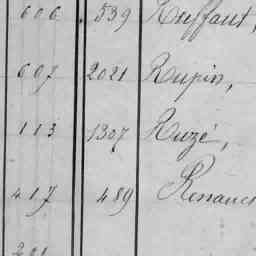 606 539 Ruffaut,
607 2021 Rupin,
113 1307 Ruzé,
417 489
201